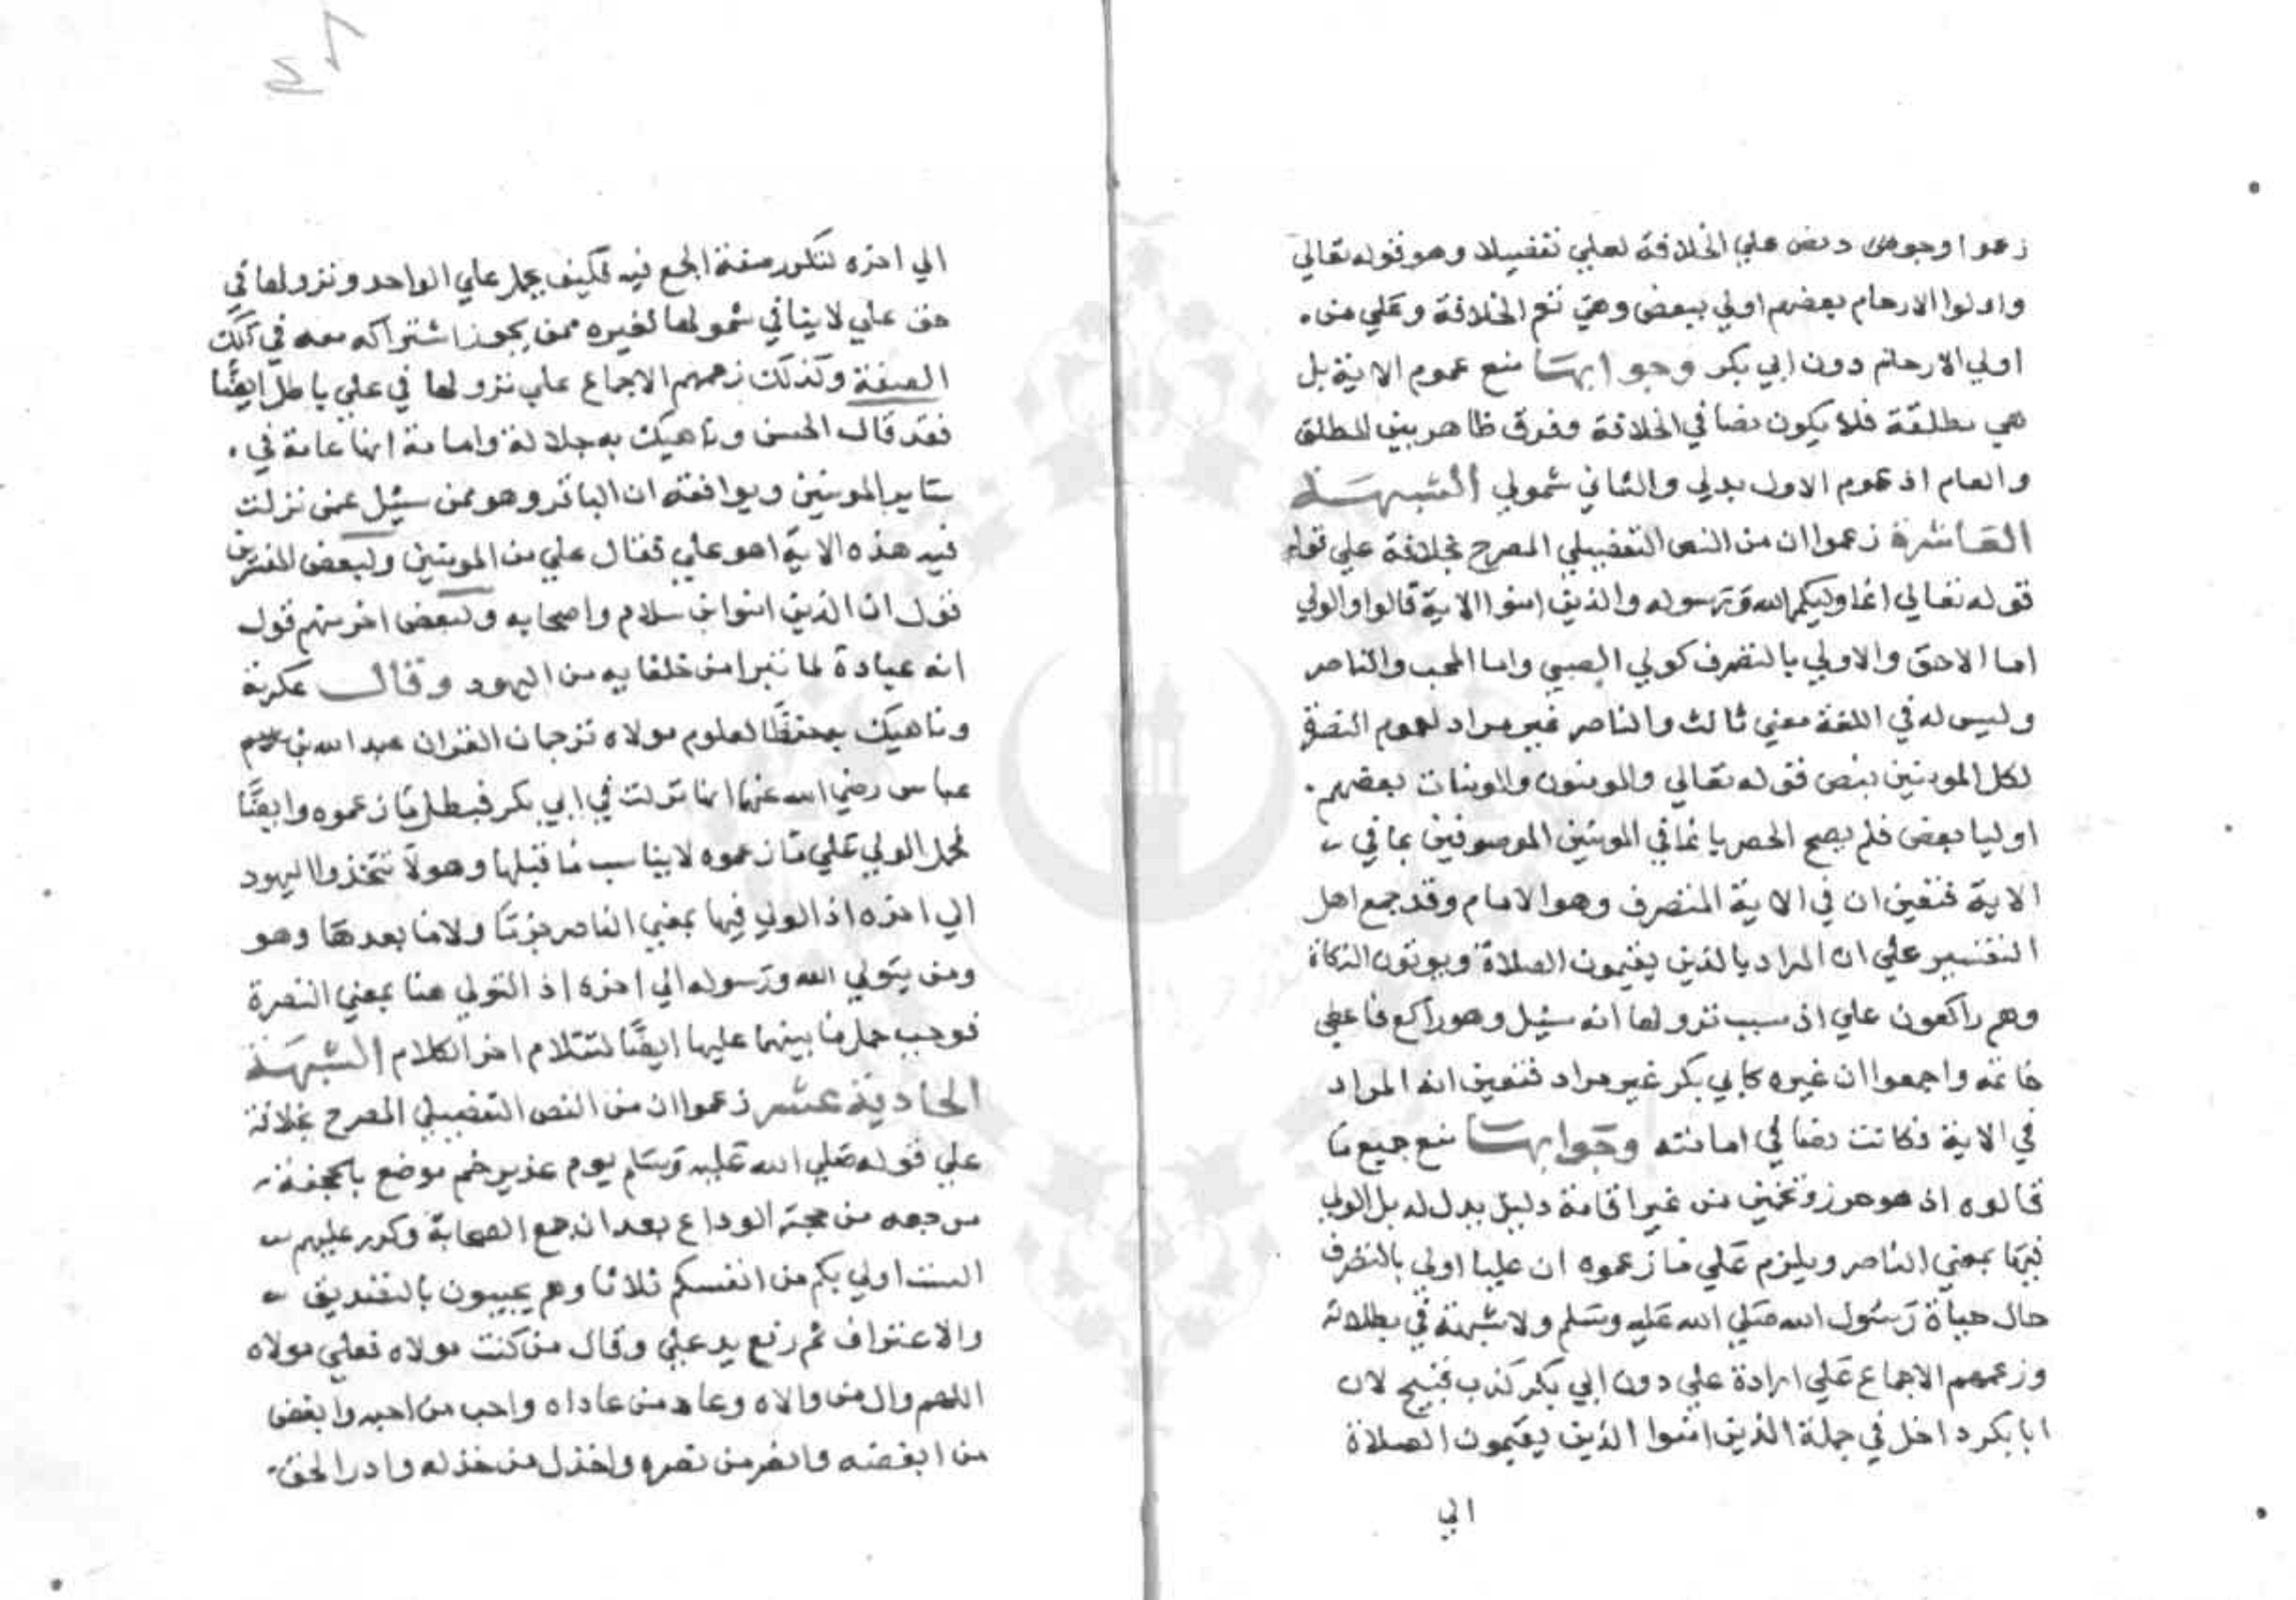 زعموا وجود نص علي الخلافة لعلي تفصيلا وهو قوله تعالي
واولوا الارحام بعضهم اولي ببعض وهي تعم الخلافة وعلي من
اولي الارحام دون ابي بكر وجوابها منع عموم الاية بل
هي مطلقة فلا يكون نصا في الخلافة وفرق ظاهر بين المطلق
والعام اذ عموم الاول بدلي والثاني شمولي الشبهة
العاشرة زعموا ان من النص التفصيلي المصرح بخلافة علي قوله
قوله تعالي انما وليكم الله ورسوله والذين امنوا الاية قالوا والولي
اما الاحق والاولي بالتصرف كولي الصبي واما المحب والناصر
وليس له في اللغة معني ثالث والناصر غير مراد لعموم النصرة
لكل المومنين بنص قوله تعالي والمومنون والمومنات بعضهم
اوليا بعض فلم يصح الحصر بانما في المومنين الموصوفين بما في
الاية فتعين ان في الاية المتصرف وهو الامام وقد جمع اهل
التفسير علي ان المراد بالذين يقيمون الصلاة ويوتون الزكاة
وهم راكعون علي اذ سبب نزولها انه سئيل وهو راكع فاعطي
خاتمه واجمعوا ان غيره كابي بكر غير مراد فتعين انه المراد
في الاية فكانت نصا في امامته وجوابها منع جميع ما
قالوه اذ هو حرز وتخمين من غير اقامة دليل يدل له بل الولي
فيها بمعني الناصر ويلزم علي ما زعموه ان عليا اولي بالتصرف
حال حياة رسول الله صلي الله عليه وسلم ولا شبهة في بطلانه
وزعمهم الاجماع علي ارادة علي دون ابي بكر كذب قبيح لان
ابا بكر داخل في جملة الذين امنوا الذين يقيمون الصلاة
الي
الي اخره لتكرر صفة الجمع فيه فكيف يحمل علي الواحد ونزولها في
حق علي لا ينافي شمولها لغيره ممن يجوز اشتراكه معه في تلك
الصفة وكذلك زعمهم الاجماع علي نزولها في علي باطل ايضا
فقد قال الحسن وناهيك به جلالة وامامة انها عامة في
ساير المومنين ويوافقه ان الباقر وهو ممن سئيل عمن نزلت
فيه هذه الاية اهو علي فقال علي من المومنين ولبعض المفسرين
قول ان الذين امنوا ابن سلام واصحابه ولبعض اخر منهم قول
انه عبادة لما تبرا من خلفايه من اليهود وقال عكرمة
وناهيك بحفظا لعلوم مولاه ترجمان القران عبد الله بن
عباس رضي الله عنهما انها نزلت في ابي بكر فبطل ما زعموه وايضا
فحمل الولي علي ما زعموه لا يناسب ما قبلها وهو لا تتخذوا اليهود
الي اخره اذ الولي فيها بمعني الناصر جزما ولا ما بعدها وهو
ومن يتولي الله ورسوله الي اخره اذ التولي هنا بمعني النصرة
فوجب حمل ما بينهما عليها ايضا لتتلام اخر الكلام الشبهة
الحادية عشر زعموا ان من النص التفصيلي المصرح بخلافة
علي قوله صلي الله عليه وسلم يوم غدير خم موضع بالجحفة
مرجعه من حجة الوداع بعد ان جمع الصحابة وكرر عليهم
الست اولي بكم من انفسكم ثلاثا وهم يجيبون بالتصديق
والاعتراف ثم رفع يد علي وقال من كنت مولاه فعلي مولاه
اللهم وال من والاه وعاد من عاداه واحب من احبه وابغض
من ابغضه وانصر من نصره واخذل من خذله وادر الحق